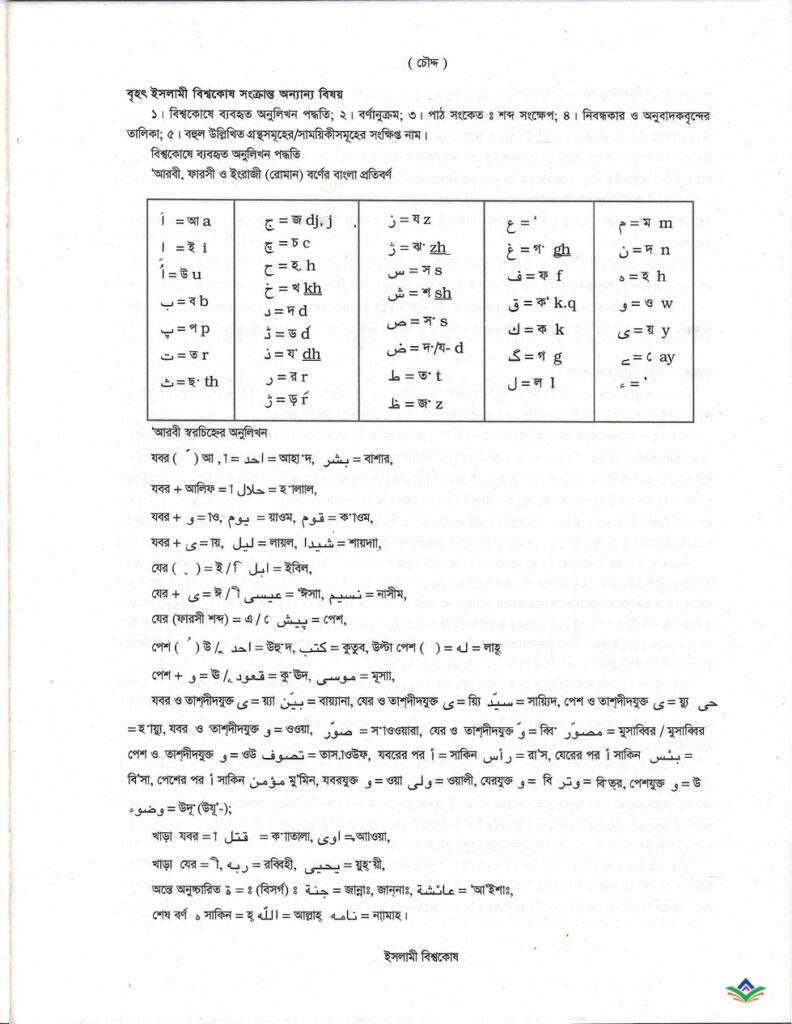 ( চৌদ্দ )
বৃহৎ ইসলামী বিশ্বকোষ সংক্রান্ত অন্যান্য বিষয়
১। বিশ্বকোষে ব্যবহৃত অনুলিখন পদ্ধতি; ২। বর্ণানুক্রম; ৩। পাঠ সংকেত ঃ শব্দ সংক্ষেপ; ৪। নিবন্ধকার ও অনুবাদকবৃন্দের
তালিকা; ৫। বহুল উল্লিখিত গ্রন্থসমূহের/সাময়িকীসমূহের সংক্ষিপ্ত নাম।
বিশ্বকোষে ব্যবহৃত অনুলিখন পদ্ধতি
'আরবী, ফারসী ও ইংরাজী (রোমান) বর্ণের বাংলা প্রতিবর্ণ
اَ = আ a
ا = ই i
اُ = উ u
ب = ব b
پ = প p
ت = ত r
ث = ছ· th
ج = জ dj, j
چ = চ c
ح = হ· h
خ = খ kh
د = দ d
ڈ = ড d́
ذ = য· dh
ر = র r
ڑ = ড় ŕ
ز = য z
ژ = ঝ· zh
س = স s
ش = শ sh
ص = স· s
ض = দ·/য- d
ط = ত· t
ظ = জ· z
ع = ‘
غ = গ· gh
ف = ফ f
ق = ক‘ k.q
ك = ক k
گ = গ g
ل = ল l
م = ম m
ن = দ n
ہ = হ h
و = ও w
ی = য় y
ے = ে ay
ء = ’
'আরবী স্বরচিহ্নের অনুলিখন
যবর ( َ ) আ , া = احد = আহা·দ, بشر = বাশার,
যবর + আলিফ = া حلال = হ·ালাল,
যবর + و = াও, يوم = য়াওম, قوم = ক·াওম,
যবর + ی = ায়, ليل = লায়ল, شيدا = শায়দা,
যের ( ِ ) = ই / ি ابل = ইবিল,
যের + ی = ঈ / ী عيسى = 'ঈসা, نسيم = নাসীম,
যের (ফারসী শব্দ) = এ / ে پيش = পেশ,
পেশ ( ُ ) উ / ু احد = উহু·দ, كتب = কুতুব, উল্টা পেশ ( ) = له = লাহূ
পেশ + و = ঊ / ূ قعود = কু·'ঊদ, موسى = মূসা,
যবর ও তাশ্দীদযুক্ত ی = য়্যা بيّن = বায়্যানা, যের ও তাশ্দীদযুক্ত ی = য়্যি سيّد = সায়্যিদ, পেশ ও তাশ্দীদযুক্ত ی = য়্যু حی
= হ·ায়্যু, যবর ও তাশ্দীদযুক্ত و = ওওয়া, صوّر = স·াওওয়ারা, যের ও তাশ্দীদযুক্ত وّ = ব্বি مصوّر = মুসাব্বির / মুসাব্বির
পেশ ও তাশ্দীদযুক্ত و = ওউ تصوف = তাস·াওউফ, যবরের পর أ = সাকিন رأس = রা'স, যেরের পর أ সাকিন بئس =
বি'সা, পেশের পর أ সাকিন مؤمن মু'মিন, যবরযুক্ত و = ওয়া ولى = ওয়ালী, যেরযুক্ত و = বি وتر = বিত্‌র, পেশযুক্ত و = উ
وضوء = উদূ (উযূ-);
খাড়া যবর = া قتل = ক·াতালা, اوى = আাওয়া,
খাড়া যের = ী, ربه = রব্বিহী, يحيى = য়ুহ্·য়ী,
অন্তে অনুচ্চারিত ة = ঃ (বিসর্গ) ঃ جنة = জান্নাঃ, জান্‌নাঃ, عائشة = 'আ'ইশাঃ,
শেষ বর্ণ ه সাকিন = হ্ الله = আল্লাহ্ نامه = নামাহ।
ইসলামী বিশ্বকোষ